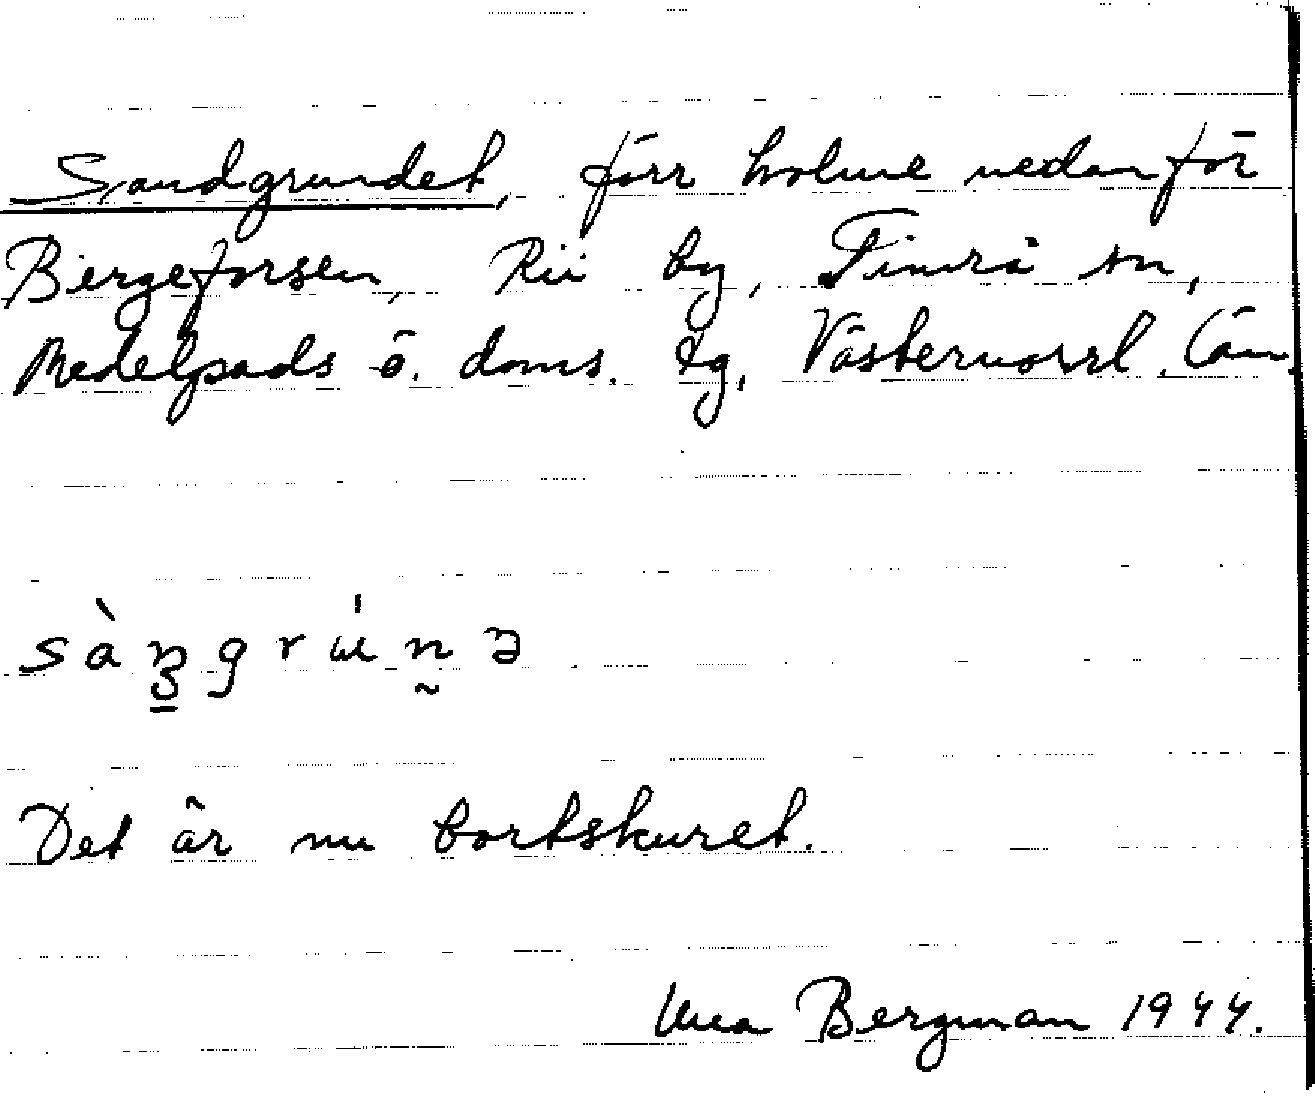 Sandgrundet, förr holme nedanför
Bergeforsen, Rii by, Timrå sn,
Medelpads ö. doms. tg, Västernorrl. län.
sàn̲gru̇́n̰ə
Det är nu bortskuret.
Bergman 1944.